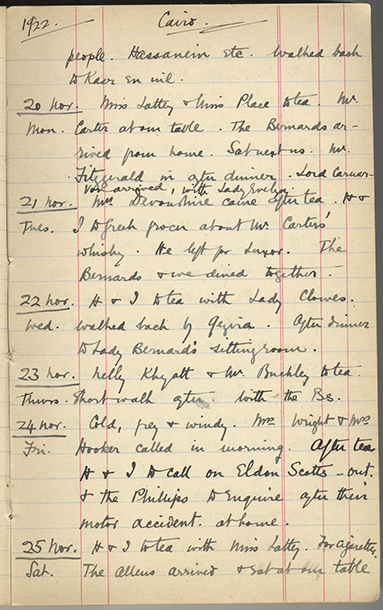 1922. Cairo.
people. Hassanein etc. Walked back
to Kasr en nil.
20 Nov. Miss Lattey & Miss Place to tea. Mr.
Mon. Carter at our table. The Bernards ar-
rived from home. Sat next us. Mr.
Fitzgerald in after dinner. Lord Carnar-
von arrived, with Lady Evelyn.
21 Nov. Mrs Devonshire came after tea. H &
Tues. I to fresh grocer about Mr. Carter's'
whisky. He left for Luxor. The
Bernards & we dined together -
22 Nov. H & I to tea with Lady Clowes.
Wed. Walked back by Gezira. After dinner
to Lady Bernard's sitting room.
23 Nov. Nelly Khyatt & Mr. Buckley to tea.
Thurs. Short walk after. With the Bs.
24 Nov. Cold, grey & windy. Mrs Wright & Mrs
Fri. Hooker called in morning. After tea
H & I to call on Eldon Scotts - out,
& the Phillips to enquire after their
motor accident. at home.
25 Nov. H & I to tea with Miss Lattey.
Sat. The Allens arrived & sat at our table